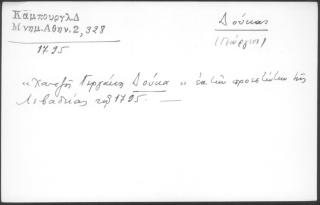 Κάμπουργλ.Δ
Μνημ.Αθην.2,328
1795
Δούκας
(Γεώργιος)
«Χατζῆ Γεργάκη Δούκα» ἐκ τῶν προεστώτων τῆς
Λιβαδείας τῷ 1795. —